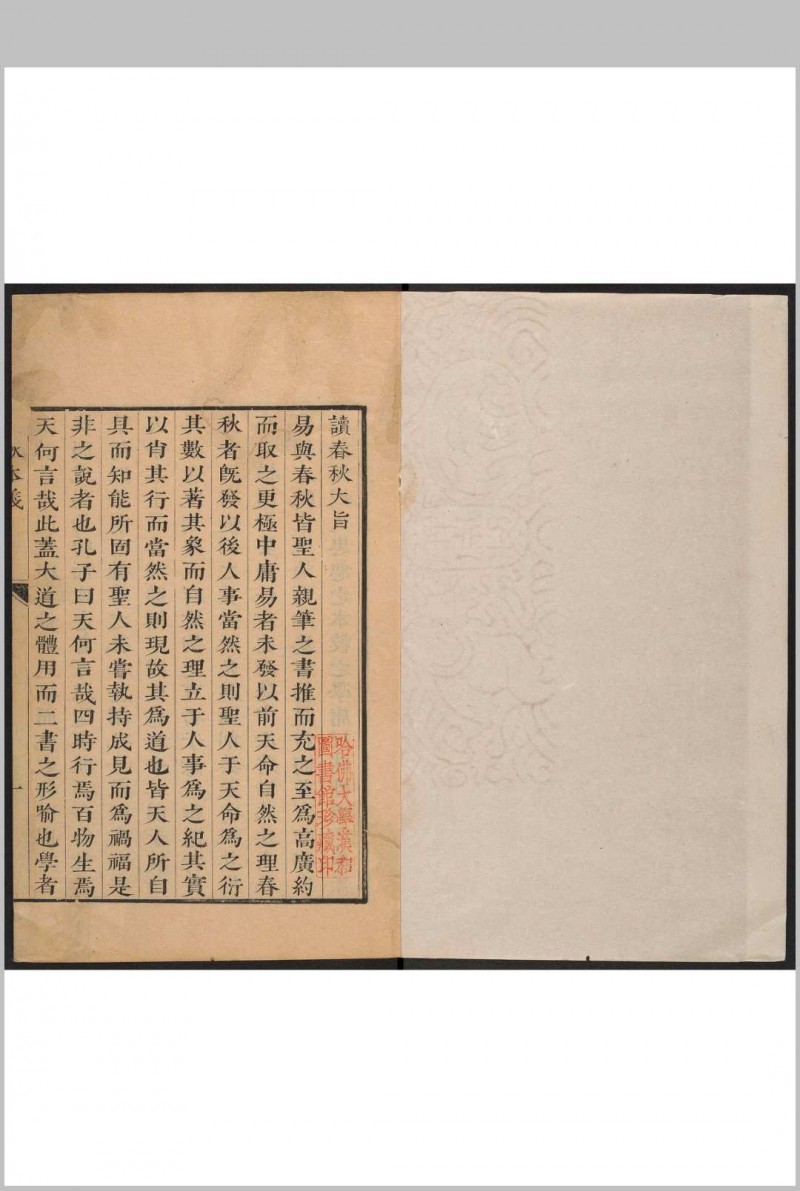 讀春秋大旨
易與春秋皆聖人親筆之書推而充之至為高廣約
而取之更極中庸易者未發以前天命自然之理春
秋者旣發以後人事當然之則聖人于天命為之衍
其數以著其象而自然之理立于人事為之紀其實
以肖其行而當然之則現故其為道也皆天人所自
具而知能所固有聖人未嘗執持成見而為禍福是
非之說者也孔子曰天何言哉四時行焉百物生焉
天何言哉此蓋大道之體用而二書之形喻也學者
本義
一
哈佛大學漢和
圖書館珍藏印